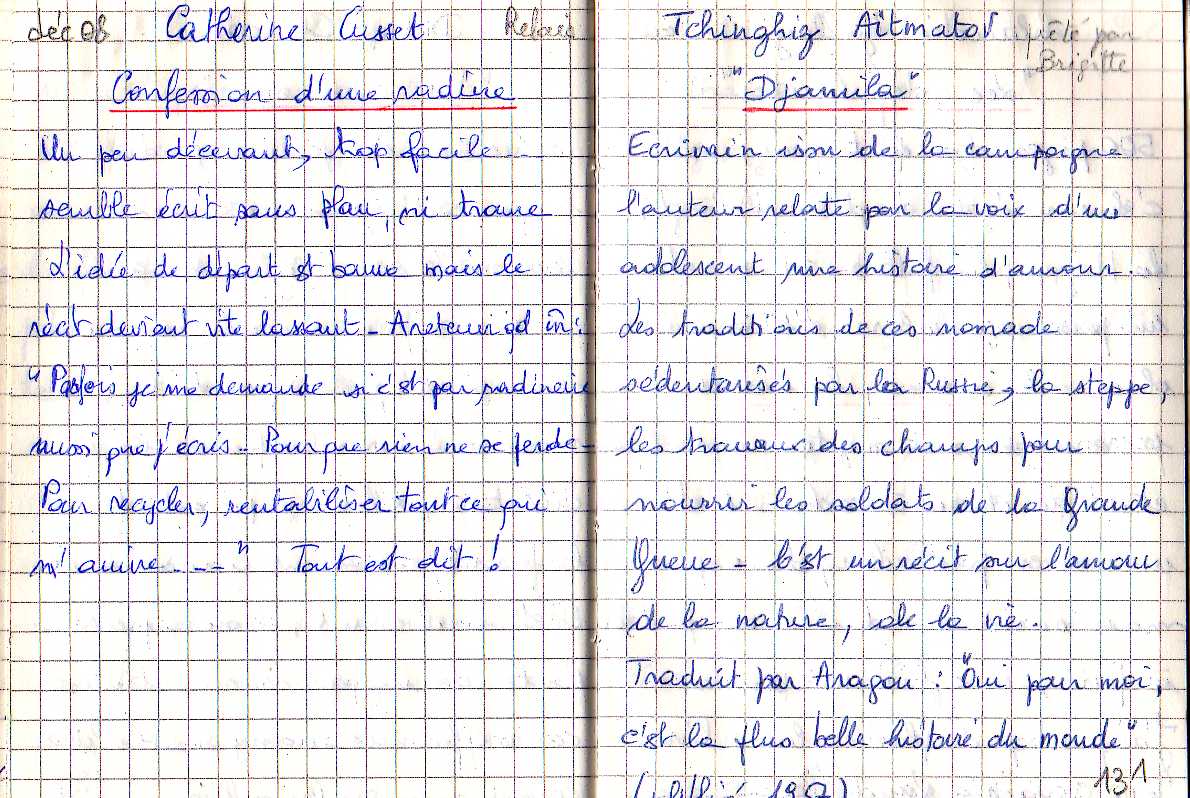 déc 08 Catherine Cusset
Confession d'une radine
Un peu décevant, trop facile
semble écrit sans plan, ni trame
L'idée de départ est bonne mais le
récit devient vite lassant - A retenir qd m̂ :
"Parfois je me demande si c'est par radinerie
aussi que j'écris - Pour que rien ne se perde -
Pour recycler, rentabiliser tout ce qui
m'arrive ---" Tout est dit !
Tchinghiz Aïtmatov prêté par
Brigitte
"Djamila"
Ecrivain issu de la campagne
l'auteur relate par la voix d'un
adolescent une histoire d'amour.
Les traditions de ces nomade
sédentarisés par la Russie, la steppe,
les travaux des champs pour
nourrir les soldats de la Grande
Guerre - C'est un récit sur l'amour
de la nature, de la vie.
Traduit par Aragon : "Oui pour moi,
c'est la plus belle histoire du monde"
131